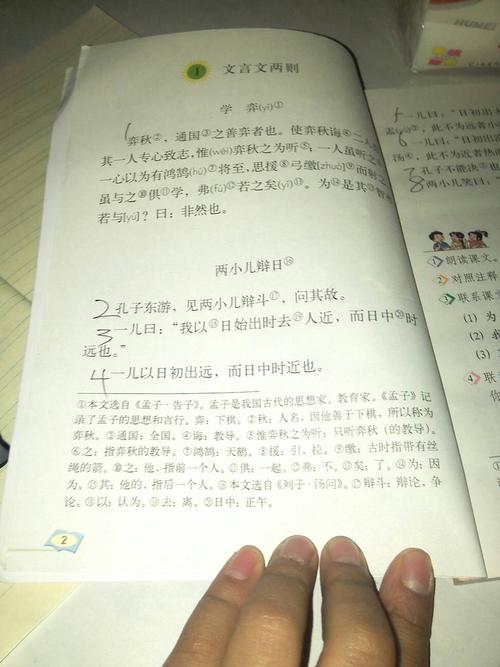 1 文言文两则
学 弈(yì)①
1 弈秋②，通国③之善弈者也。使弈秋诲④二人
其一人专心致志，惟(wéi)弈秋之为听⑤；一人虽听之
一心以为有鸿鹄(hú)⑦将至，思援⑧弓缴(zhuó)⑨而射之
虽与之⑩俱⑪学，弗(fú)⑫若之矣(yǐ)⑬。为⑭是其⑮
若与(yú)？曰：非然也。
两小儿辩日⑯
2 孔子东游，见两小儿辩斗⑰，问其故。
3 一儿曰：“我以⑱日始出时去⑲人近，而日中⑳时
远也。”
4 一儿以日初出远，而日中时近也。
①本文选自《孟子·告子》。孟子是我国古代的思想家、教育家。《孟子》记
录了孟子的思想和言行。弈：下棋。②秋：人名，因他善于下棋，所以称为
弈秋。③通国：全国。④诲：教导。⑤惟弈秋之为听：只听弈秋（的教导）。
⑥之：指弈秋的教导。⑦鸿鹄：天鹅。⑧援：引，拉。⑨缴：古时指带有丝
绳的箭。⑩之：他，指前一个人。⑪俱：一起。⑫弗：不。⑬矣：了。⑭为：因
为。⑮其：他的，指后一个人。⑯本文选自《列子·汤问》。⑰辩斗：辩论，争
论。⑱以：认为。⑲去：离。⑳日中：正午。
2
一儿曰：“日初出
盂(yú)，此不为远者小
6 一儿曰：“日初出
汤，此不为近者热
7 孔子不能决也
8 两小儿笑曰：
1 朗读课文。
2 对照注释
3 联系课
(1) 为
(2) 我
(3)
4 联
HUMEI